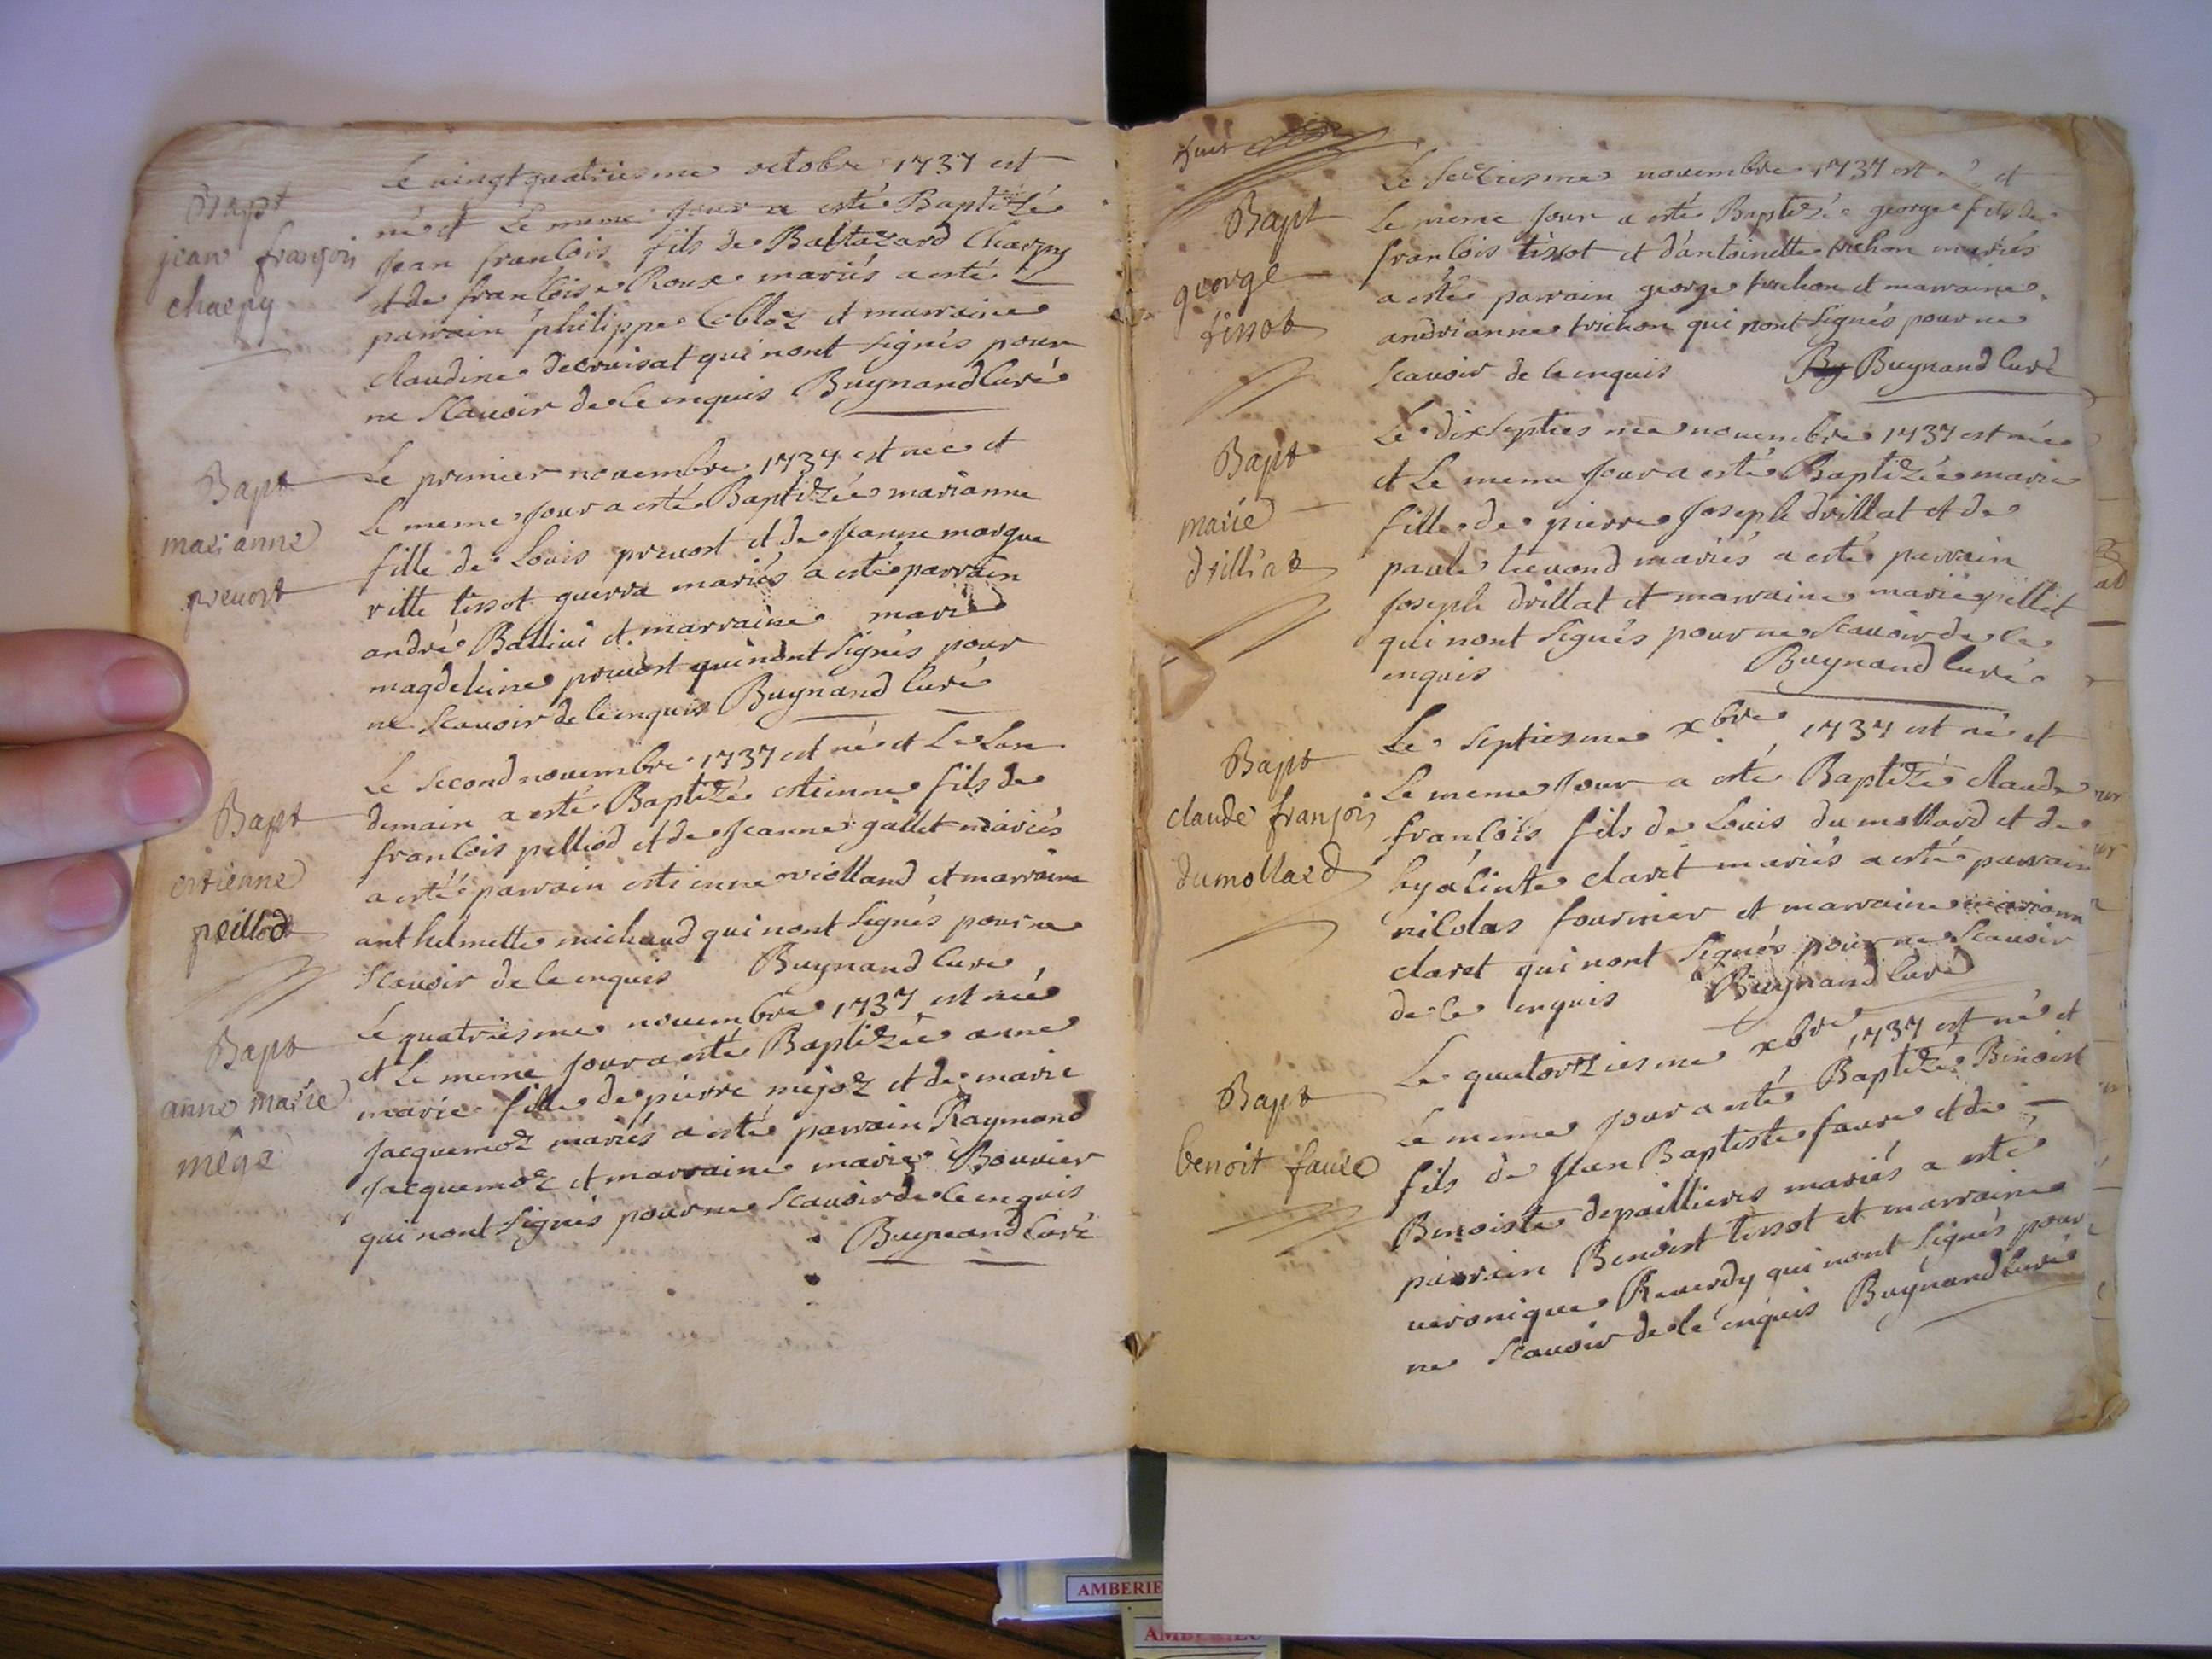 Bapt
jean françois
charpy
Le vingt quatriesme octobre 1737 est
né et Le meme jour a esté Baptizé
jean francois fils de Baltazard Charpy
et de francoise Roux mariés a esté
parrain philippe Cobloz et marraine
claudine decruisat qui nont Signés pour
ne Scavoir de ce enquis Buynand Curé
Bapt
marianne
prevost
Le premier novembre 1737 est née et
Le meme jour a esté Baptizée marianne
fille de Louis prevost et de jeanne margue
ritte tissot guerra mariés a esté parrain
andré Ballivi et marraine marie
magdeleine prevost qui nont Signés pour
ne Scavoir de ce enquis Buynand Curé
Bapt
estienne
peillod
Le Second novembre 1737 est né et Le Lan
demain a esté Baptizé estienne fils de
francois pelliod et de jeanne gallet mariés
a esté parrain estienne violland et marraine
anthelmette michaud qui nont Signés pour ne
Scavoir de ce enquis Buynand Curé
Bapt
anne marie
mége
Le quatriesme novembre 1737 est née
et Le meme jour a esté Baptizée anne
marie fille de pierre mejoz et de marie
jacquemoz mariés a esté parrain Raymond
jacquemoz et marraine marie Bouvier
qui nont Signés pour ne Scavoir de ce enquis
Buynand Curé
huit
Bapt
george
tissot
Le Seiziesme novembre 1737 est né et
Le meme jour a esté Baptizé george fils de
francois tissot et d'antoinette trichon mariés
a esté parrain george trichon et marraine
andrianne trichon qui nont Signés pour ne
Scavoir de ce enquis By Buynand Curé
Bapt
marie
drillat
Le dixseptiesme novembre 1737 est née
et Le meme jour a esté Baptizée marie
fille de pierre joseph drillat et de
paule tievand mariés a esté parrain
joseph drillat et marraine marie pellet
qui nont Signés pour ne Scavoir de ce
enquis Buynand Curé
Bapt
claude françois
dumollard
Le Septiesme xbre 1737 est né et
Le meme jour a esté Baptizé claude
francois fils de Louis du mollard et de
hyacinte claret mariés a esté parrain
nicolas fournier et marraine mariann
claret qui nont Signés pour ne Scavoir
de ce enquis Buynand Curé
Bapt
benoit faure
Le quatorziesme xbre 1737 est né et
Le meme jour a esté Baptizé Benoist
fils de jean Baptiste faure et de
Benoiste depaillieres mariés a esté
parrain Benoist tissot et marraine
veronique Reverdy qui nont Signés pour
ne Scavoir de ce enquis Buynand Curé
AMBERIE